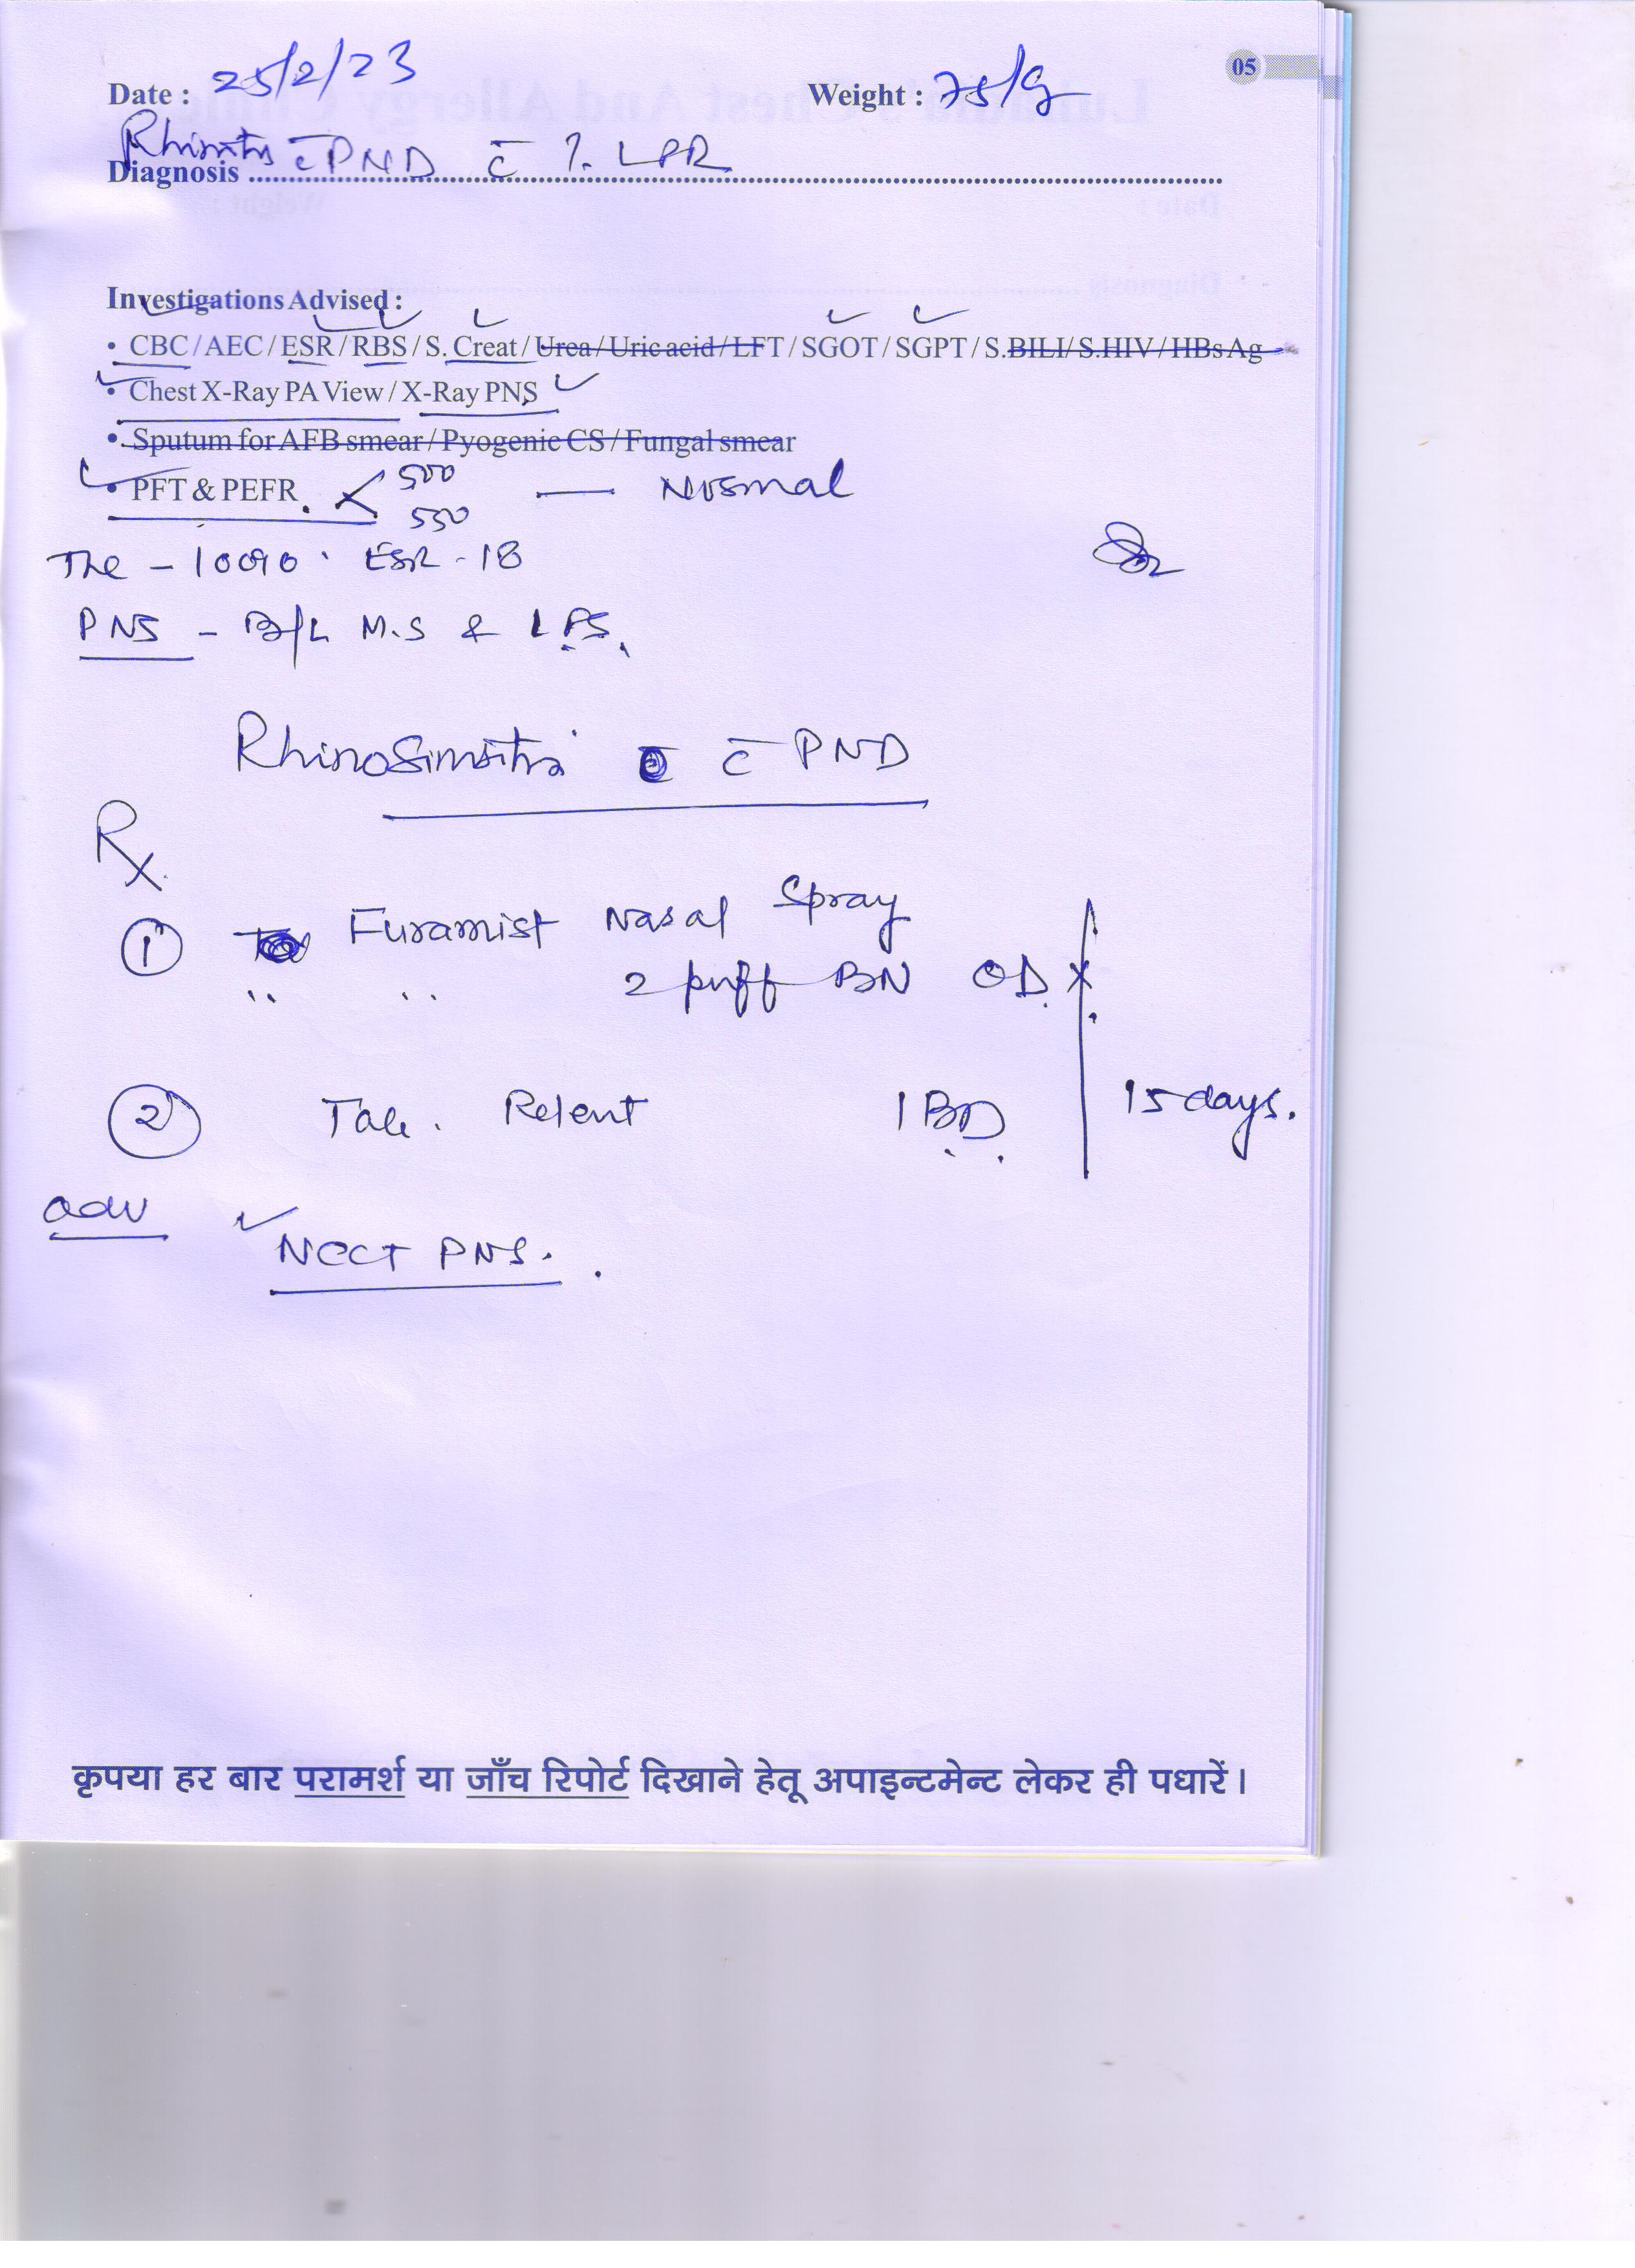 05
Date : 25/2/23 Weight : 75kg
Rhinitis c̄ PND c̄ ?. LPR
Diagnosis
Investigations Advised :
• CBC / AEC / ESR / RBS / S. Creat / Urea / Uric acid / LFT / SGOT / SGPT / S.BILI / S.HIV / HBsAg
• Chest X-Ray PA View / X-Ray PNS
• Sputum for AFB smear / Pyogenic CS / Fungal smear
• PFT & PEFR. < 500 — Normal
550
- 10090. ESR - 18
PNS - B/L M.S &
Rhinosinusitis c̄ PND
Rx
① Furamist Nasal Spray
2 puff BN OD
② Tab. Relent 1 BD. 15 days.
adv
NCCT PNS.
कृपया हर बार परामर्श या जाँच रिपोर्ट दिखाने हेतू अपाइन्टमेन्ट लेकर ही पधारें।